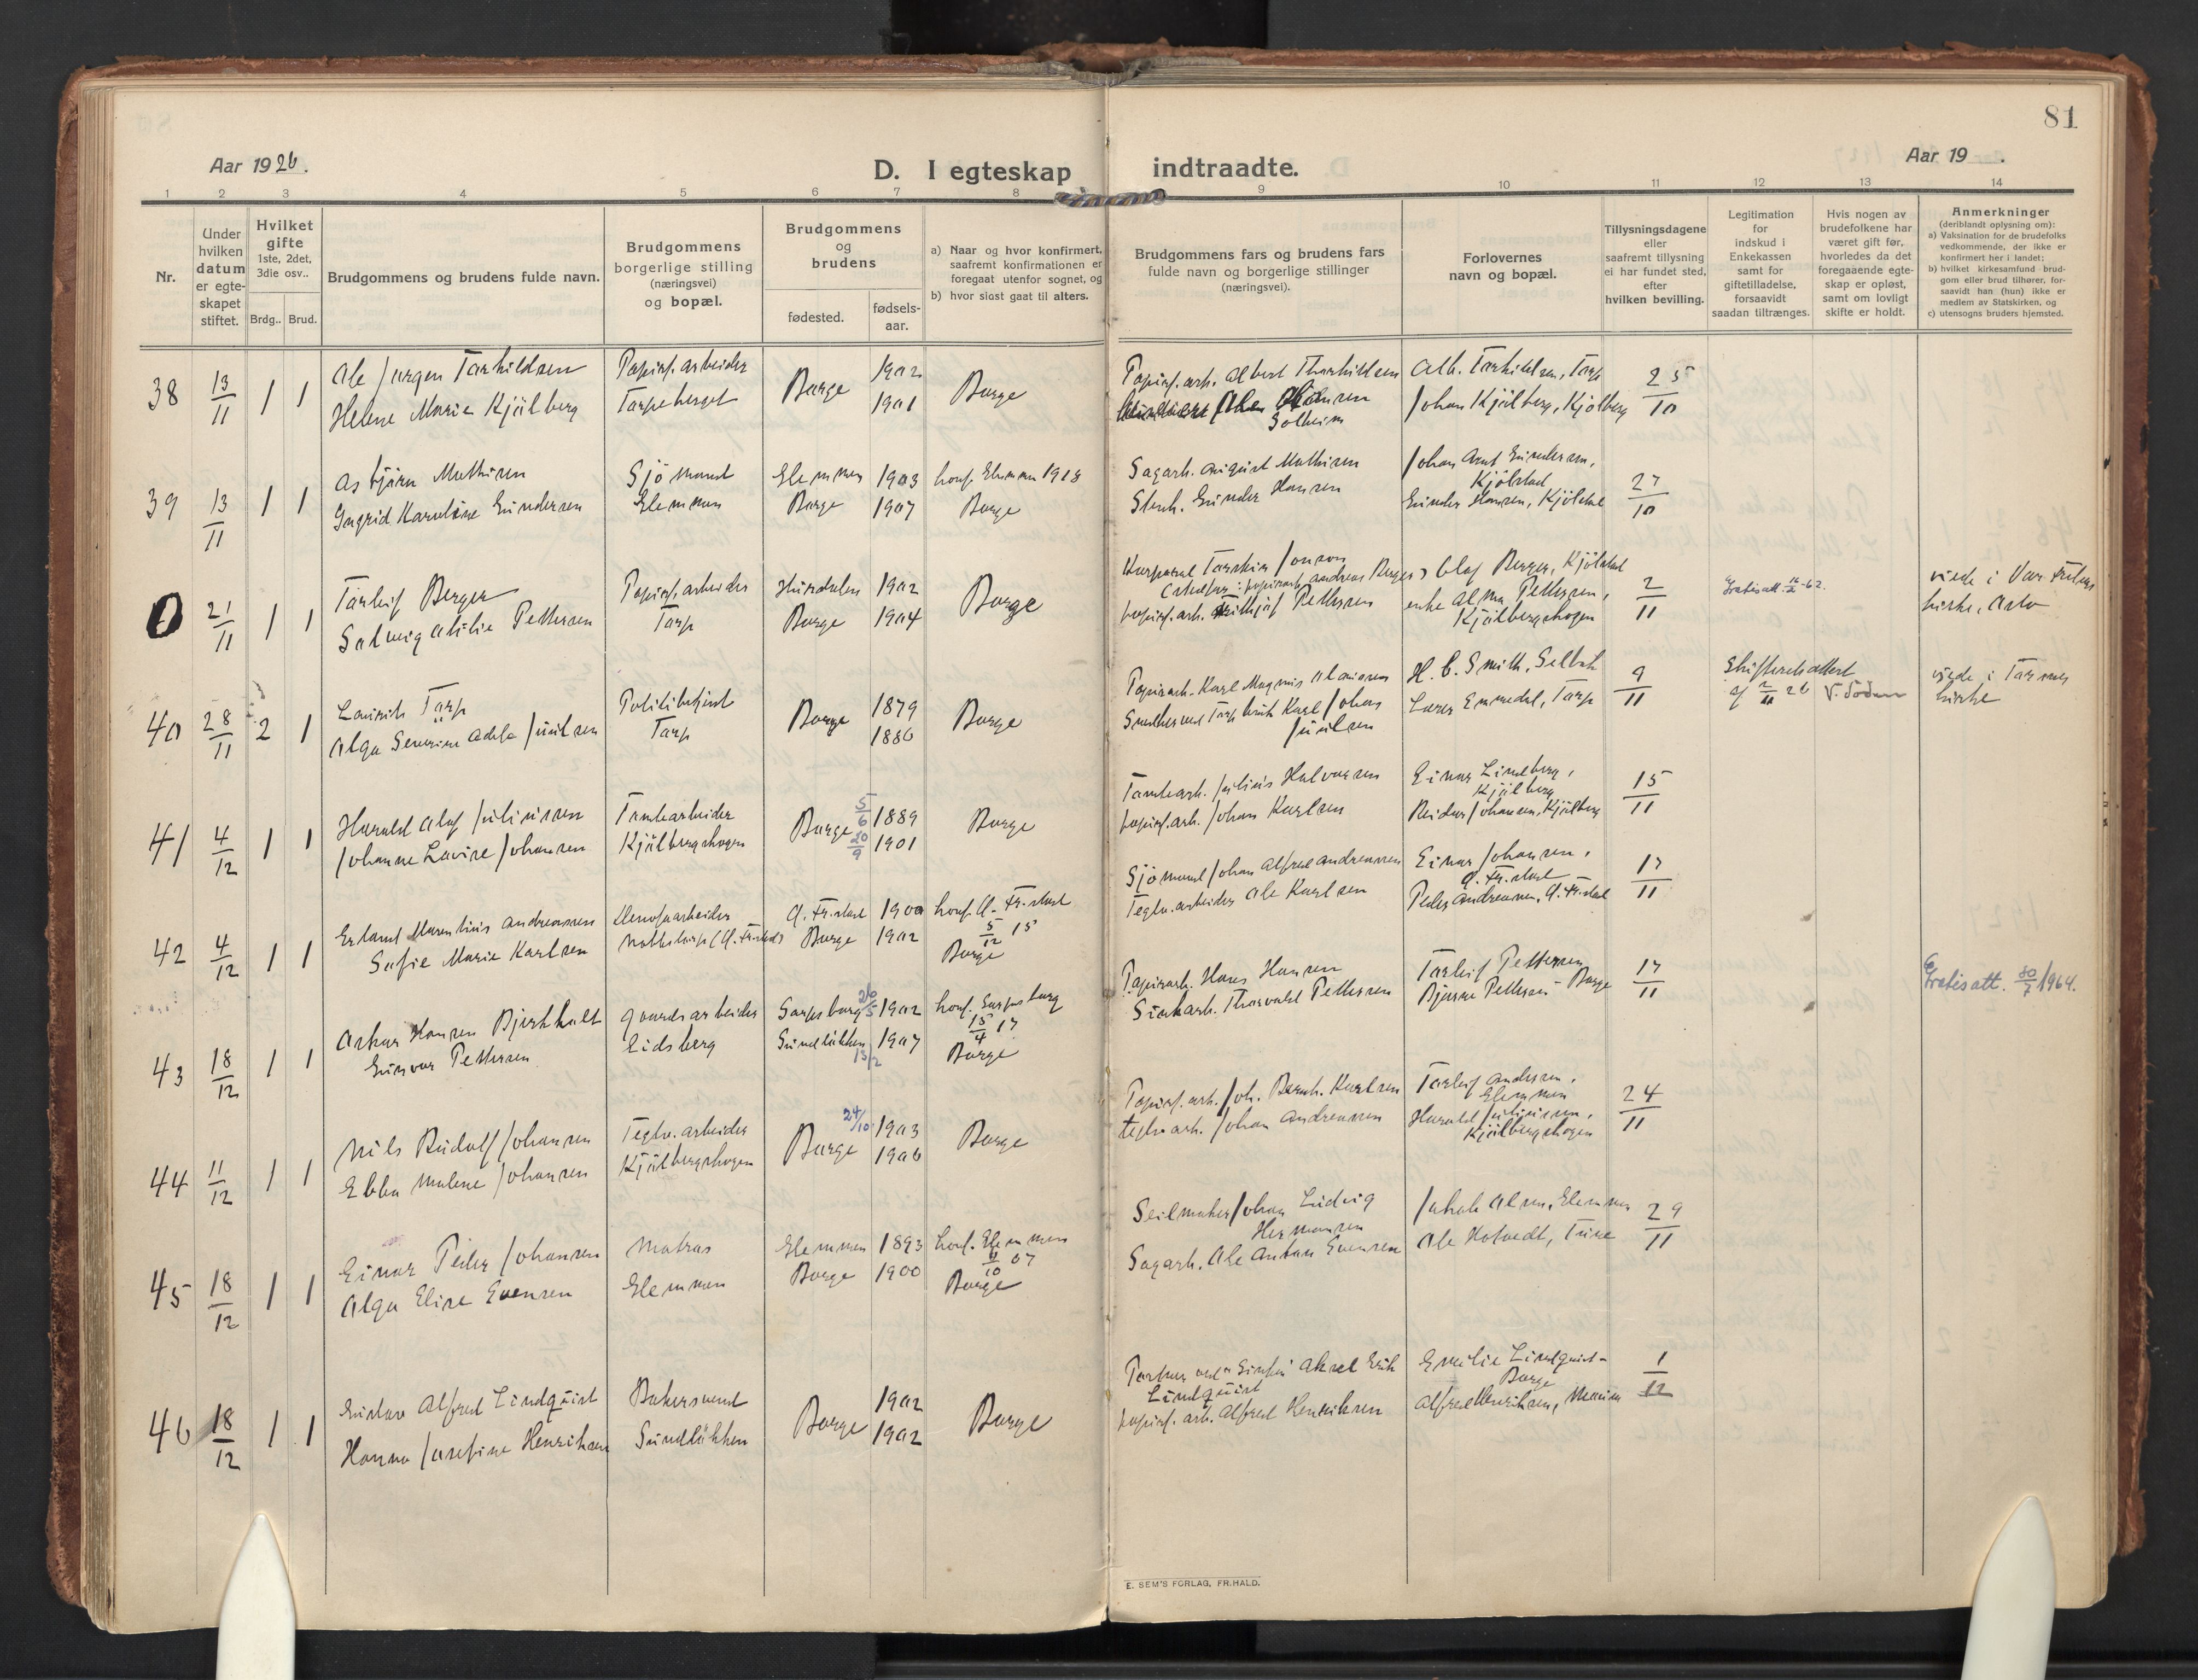 81
Aar 1926.
D. I egteskap indtraadte.
Aar 19 .
1 2 3 4 5 6 7 8 9 10 11 12 13 14
Nr.
Under hvilken datum er egte-skapet stiftet.
Hvilket gifte 1ste, 2det, 3die osv..
Brdg.. Brud.
Brudgommens og brudens fulde navn.
Brudgommens borgerlige stilling (næringsvei) og bopæl.
Brudgommens og brudens
fødested.
fødsels-aar.
a) Naar og hvor konfirmert, saafremt konfirmationen er foregaat utenfor sognet, og
b) hvor sidst gaat til alters.
Brudgommens fars og brudens fars fulde navn og borgerlige stillinger (næringsvei).
Forlovernes navn og bopæl.
Tillysningsdagene eller saafremt tillysning ei har fundet sted, efter hvilken bevilling.
Legitimation for indskud i Enkekassen samt for giftetilladelse, forsaavidt saadan tiltrænges.
Hvis nogen av brudefolkene har været gift før, hvorledes da det foregaaende egte-skap er opløst, samt om lovligt skifte er holdt.
Anmerkninger (deriblandt oplysning om):
a) Vaksination for de brudefolks vedkommende, der ikke er konfirmert her i landet;
b) hvilket kirkesamfund brud-gom eller brud tilhører, for-saavidt han (hun) ikke er medlem av Statskirken, og
c) utensogns bruders hjemsted.
38 13/11 1 1
Ole Jørgen Torkildsen
Helene Marie Kjølberg
Papirf. arbeider
Torpeberget
Borge
1902
1901
Borge
Papirf. arb. Albert Thorkildsen
Solheim
Alb. Torkildsen, Torp
Johan Kjølberg, Kjølberg
25/10
39 13/11 1 1
Asbjørn Mathisen
Ingrid Karoline Gundersen
Sjømand
Glemmen
Glemmen
Borge
1903
1907
konf. Glemmen 1918
Borge
Sagarb. August Mathisen
Stenh. Gunder Hansen
Johan Arnt Gundersen,
Kjølstad
Gunder Hansen, Kjølstad
27/10
0 21/11 1 1
Torleif Berger
Solveig Otilie Pettersen
Papirf. arbeider
Torp
Hurdalen
Borge
1902
1904
Borge
Korporal Torstein Jonson
papirf. arb. Frithjof Pettersen
Olaf Berger, Kjølstad
enke Alma Pettersen,
Kjølbergskogen
2/11
Gratisatt.
viede i Vor Frelsers
kirke, Oslo
40 28/11 2 1
Lauritz Torp
Olga Severine Adele Juulsen
Politibetjent
Torp
Borge
1879
1886
Borge
Papirarb. Karl Magnus
Smed ved Torp bruk Karl Johan
Juulsen
H. C. Smith, Selbak
Lærer Emmedal, Torp
9/11
Skifteretsattest
viede i Torsnes
kirke
41 4/12 1 1
Harald Olaf Juliussen
Johanne Lovise Johansen
Tomtearbeider
Kjølbergskogen
Borge
5/6 1889
20/9 1901
Borge
Tomtearb. Julius Halvorsen
papirf. arb. Johan Karlsen
Einar Lindberg,
Kjølberg
Reidar Johansen, Kjølberg
15/11
42 4/12 1 1
Erland Marentius Andreassen
Sofie Marie Karlsen
Nabbetorp (Ø. Fr.stad)
Ø. Fr.stad
Borge
1900
1902
konf. Ø. Fr.stad
5/12 15
Borge
Sjømand Johan Alfred Andreassen
Teglv. arbeider Ole Karlsen
Einar Johansen,
Ø. Fr.stad
Peder Andreassen, Ø. Fr.stad
17/11
43 18/12 1 1
Oskar Hansen Bjerkholt
Gunvor Pettersen
Gaardsarbeider
Eidsberg
Sarpsborg
Sundløkken
26/5 1902
13/2 1907
konf. Sarpsborg
15/4 17
Borge
Papirarb. Hans Hansen
Thorvald Pettersen
Torleif Pettersen
Bjarne Pettersen - Borge
17/11
Gratisatt. 30/7 1964.
44 11/12 1 1
Nils Rudolf Johansen
Ebba Malene Johansen
Teglv. arbeider
Kjølbergskogen
Borge
24/10 1903
1906
Borge
Papirf. arb. Joh. Bernh. Karlsen
teglv. arb. Johan Andreassen
Torleif Andersen,
Glemmen
Harald Juliussen,
Kjølbergskogen
24/11
45 18/12 1 1
Einar Peder Johansen
Olga Elise Evensen
Matros
Glemmen
Glemmen
Borge
1893
1900
konf. Glemmen
/10 07
Borge
Seilmaker Johan Ludvig
Hermansen
Sagarb. Ole Anton Evensen
Jakob Olsen, Glemmen
Ole Hofvedt, Tune
29/11
46 18/12 1 1
Gustav Alfred Lindquist
Hanna Josefine Henriksen
Bakersvend
Sundløkken
Borge
1902
1902
Borge
Axel Erik
Lindquist
papirf. arb. Alfred Henriksen
Emilie Lindquist -
Borge
Alfred Henriksen,
1/12
E. SEM'S FORLAG, FR.HALD.